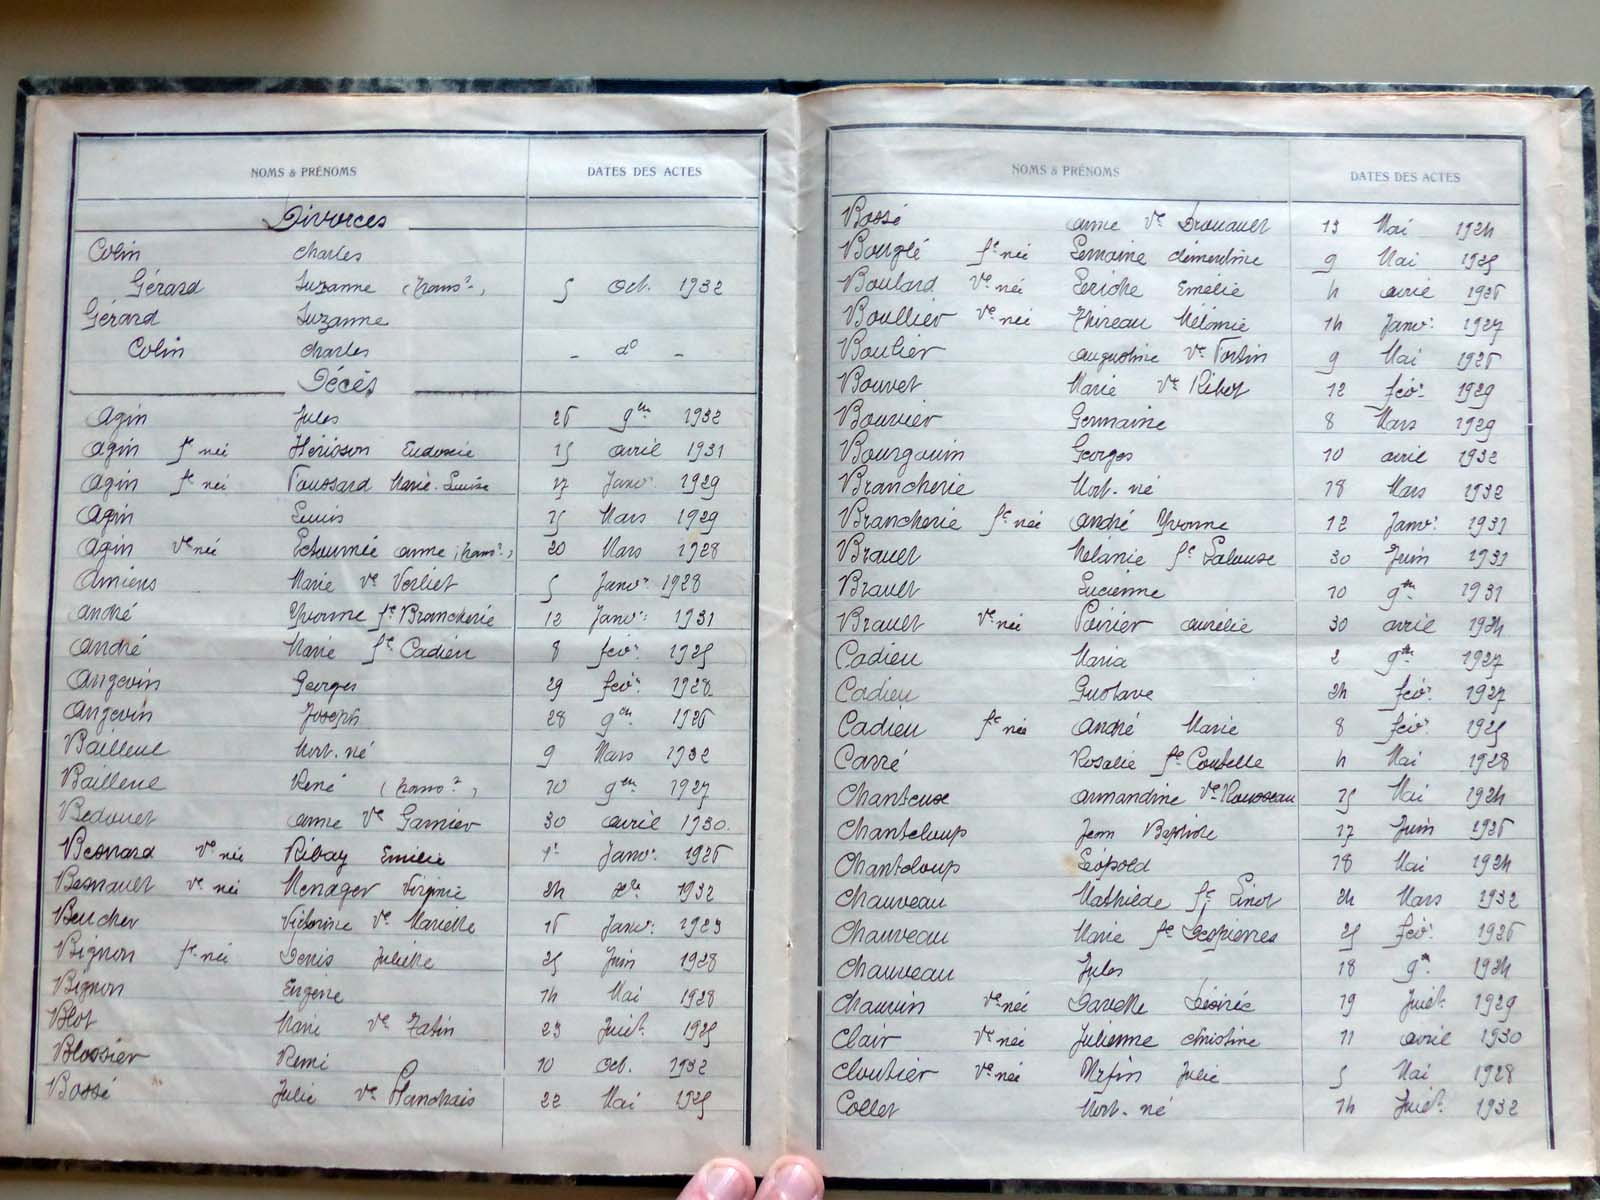 NOMS & PRÉNOMS DATES DES ACTES
Divorces
Colin Charles
Gérard Suzanne (trans.on) 5 Oct. 1932
Gérard Suzanne
Colin Charles - do -
Décès
Agin Jules 26 9bre 1932
Agin fe née Hérisson Eudoxie 15 avril 1931
Agin fe née Toussard Marie-Louise 17 Janvr 1929
Agin Louis 15 Mars 1929
Agin ve née Letournée anne (trans.on) 20 Mars 1928
Amiens Marie ve Verliet 5 Janvr 1928
André Yvonne fe Brancherie 12 Janvr 1931
André Marie fe Cadieu 8 févr 1925
Angevin Georges 29 févr 1928
Angevin Joseph 28 9bre 1926
Bailleul Mort-né 9 Mars 1932
Bailleul René (trans.on) 10 9bre 1927
Bedouet anne Ve Garnier 30 avril 1930
Besnard Ve née Ribay Emilie 1er Janvr 1926
Besnault ve née Menager Virginie 24 xbre 1932
Beucher Victorine Ve Mariette 16 Janvr 1923
Bignon fe née Denis Juliette 25 Juin 1928
Bignon Eugène 14 Mai 1928
Blot Marie Ve Tatin 23 Juilt 1925
Blossier Remi 10 Oct. 1932
Bossé Julie Ve Planchais 22 Mai 1925
NOMS & PRÉNOMS DATES DES ACTES
Bossé anne Ve Drouault 13 Mai 1924
Bourglé fe née Lemaine clémentine 9 Mai 1925
Boulard Ve née Leriche Emélie 4 avril 1926
Boullier Ve née Thireau Mélanie 14 Janvr 1927
Boulier augustine Ve Fortin 9 Mai 1926
Bouvet Marie Ve Ribot 12 févr 1929
Bouvier Germaine 8 Mars 1929
Bourgouin Georges 10 avril 1932
Brancherie Mort-né 18 Mars 1932
Brancherie fe née André Yvonne 12 Janvr 1931
Brault Mélanie fe Lalouse 30 Juin 1931
Brault Lucienne 10 9bre 1931
Brault Ve née Poirier aurélie 30 avril 1924
Cadieu Maria 2 9bre 1927
Cadieu Gustave 24 févr 1927
Cadieu fe née André Marie 8 févr 1925
Carré Rosalie fe Coutelle 4 Mai 1928
Chanteux armandine Ve Rousseau 15 Mai 1924
Chanteloup Jean Baptiste 17 Juin 1926
Chanteloup Léopold 18 Mai 1924
Chauveau Mathilde fe Pinot 24 Mars 1932
Chauveau Marie fe Despierres 25 févr 1926
Chauveau Jules 18 9bre 1924
Chauvin Ve née Darette Désirée 19 Juilt 1929
Clair Ve née Julienne christine 11 avril 1930
Cloutier Ve née Julie 5 Mai 1928
Collet Mort-né 14 Juilt 1932